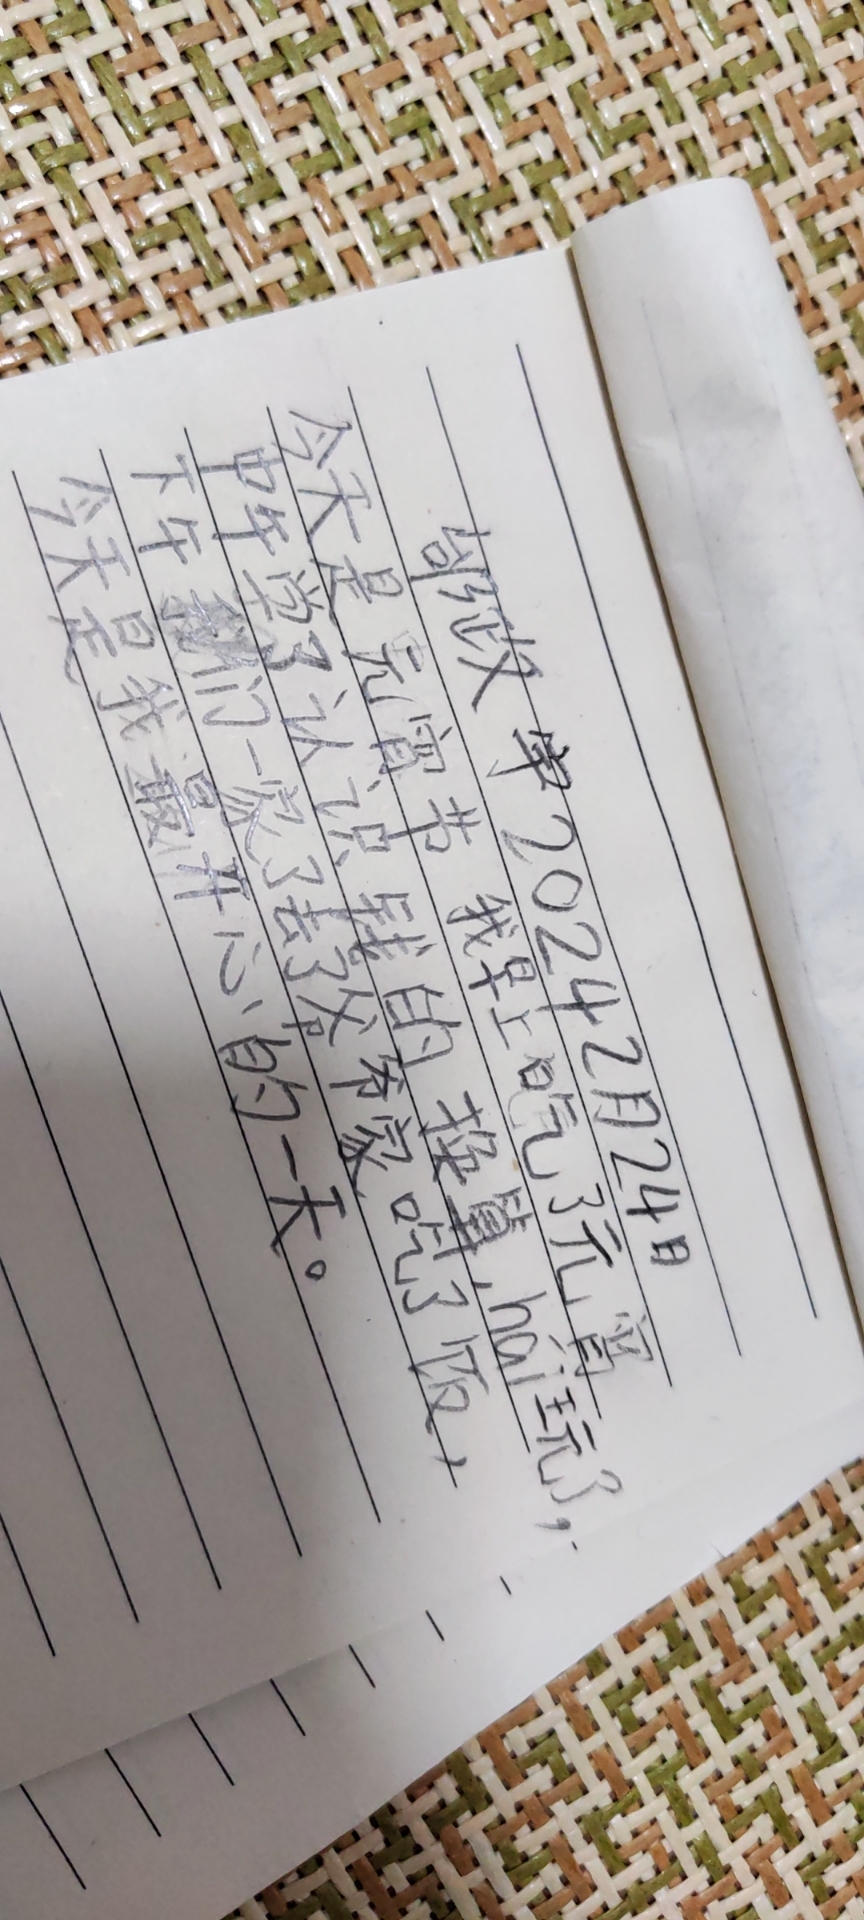 邰政宇2024 2月24日
今天是元宵节 我早上吃了元宵
中午学了认识钱的换算,hái玩了,
下午我们一家了去了爷爷家吃了饭,
今天是我最开心的一天。